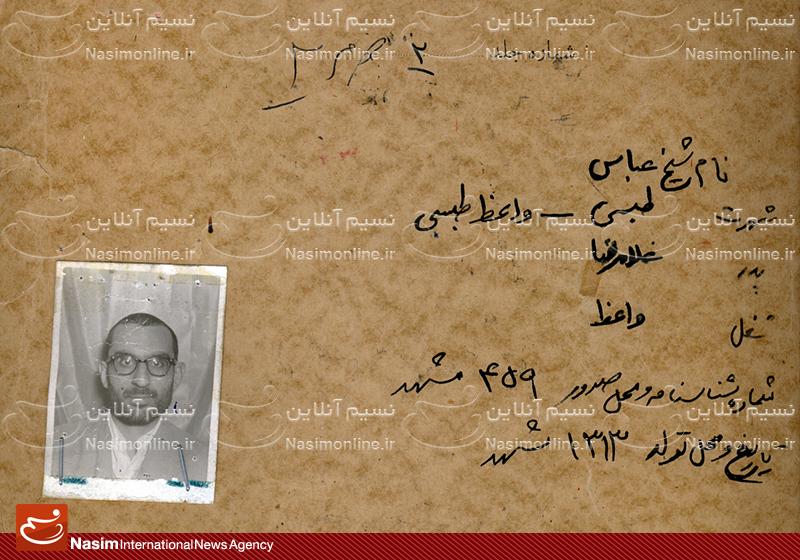 شماره جلد ۲
نام شیخ عباس
شهرت طبسی – واعظ طبسی
پدر غلامرضا
شغل واعظ
شماره شناسنامه و محل صدور ۴۵۹ مشهد
تاریخ و محل تولد ۱۳۱۳ مشهد
نسیم آنلاین
Nasimonline.ir
Nasim International News Agency